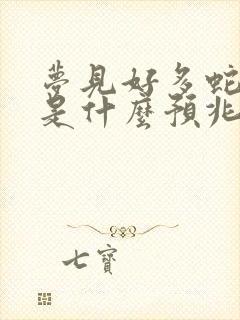 夢見好多蛇
是什麼預兆
七寶